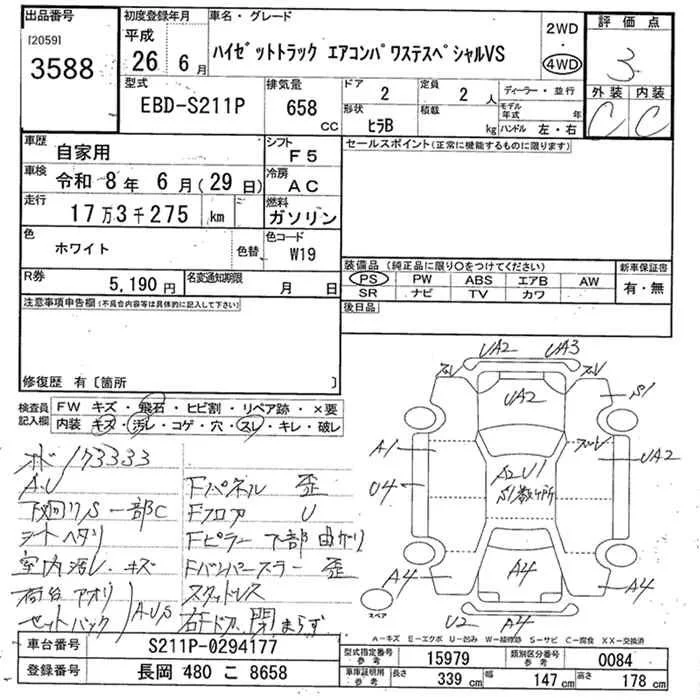 出品番号
[2059]
3588
初度登録年月
平成
26年 6月
車名・グレード
ハイゼットトラック エアコンパワステスペシャルVS
2WD
・
4WD
評価点
3
外装 内装
C C
型式
EBD-S211P
排気量
658
CC
ドア 2
定員 2 人
形状 ヒラB
積載 kg
ディーラー・並行
モデル年式 年
ハンドル 左・右
車歴 自家用
シフト F5
車検 令和 8年 6月(29日)
冷房 AC
走行 17万3千275 km
燃料 ガソリン
色 ホワイト
色替
色コード W19
R券 5,190円
名変通知期限 月 日
セールスポイント(正常に機能するものに限ります)
装備品(純正品に限り○をつけてください)
PS PW ABS エアB AW
SR ナビ TV カワ
新車保証書
有・無
後日品
注意事項申告欄(不具合内容等は具体的に記入して下さい)
修復歴 有〔箇所 〕
検査員記入欄
FW キズ・飛石・ヒビ割・リペア跡・×要
内装 キズ・汚レ・コゲ・穴・スレ・キレ・破レ
メボ 173333
A.U
下廻りS一部C
シートヘタリ
室内汚レ・キズ
荷台アオリ
セットバック
A・U・S
Fパネル 歪
Fフロア U
Fピラー下部曲がり
Fバンパースラー歪
スタッドレス
右ドア閉まらず
UA2 UA3
UA2
S1
A1
U4
A2U1
S1数ヶ所
UA2
A4
A4
A4
U2 A4
スペア
A-キズ E-エクボ U-凹み W-補修跡 S-サビ C-腐食 XX-交換済
車台番号 S211P-0294177
登録番号 長岡 480 こ 8658
型式指定番号参考 15979
類別区分番号参考 0084
車庫証明用参考 長さ 339 cm 幅 147 cm 高さ 178 cm